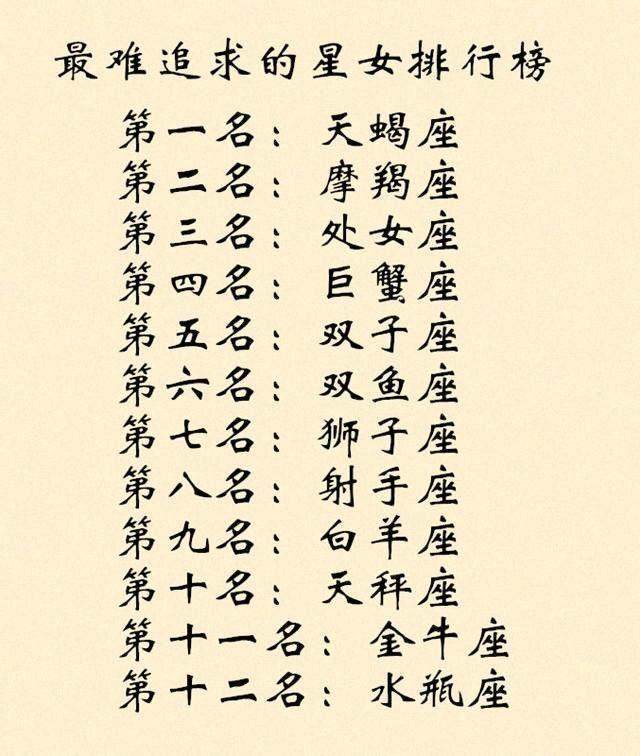 最难追求的星女排行榜
第一名：天蝎座
第二名：摩羯座
第三名：处女座
第四名：巨蟹座
第五名：双子座
第六名：双鱼座
第七名：狮子座
第八名：射手座
第九名：白羊座
第十名：天秤座
第十一名：金牛座
第十二名：水瓶座